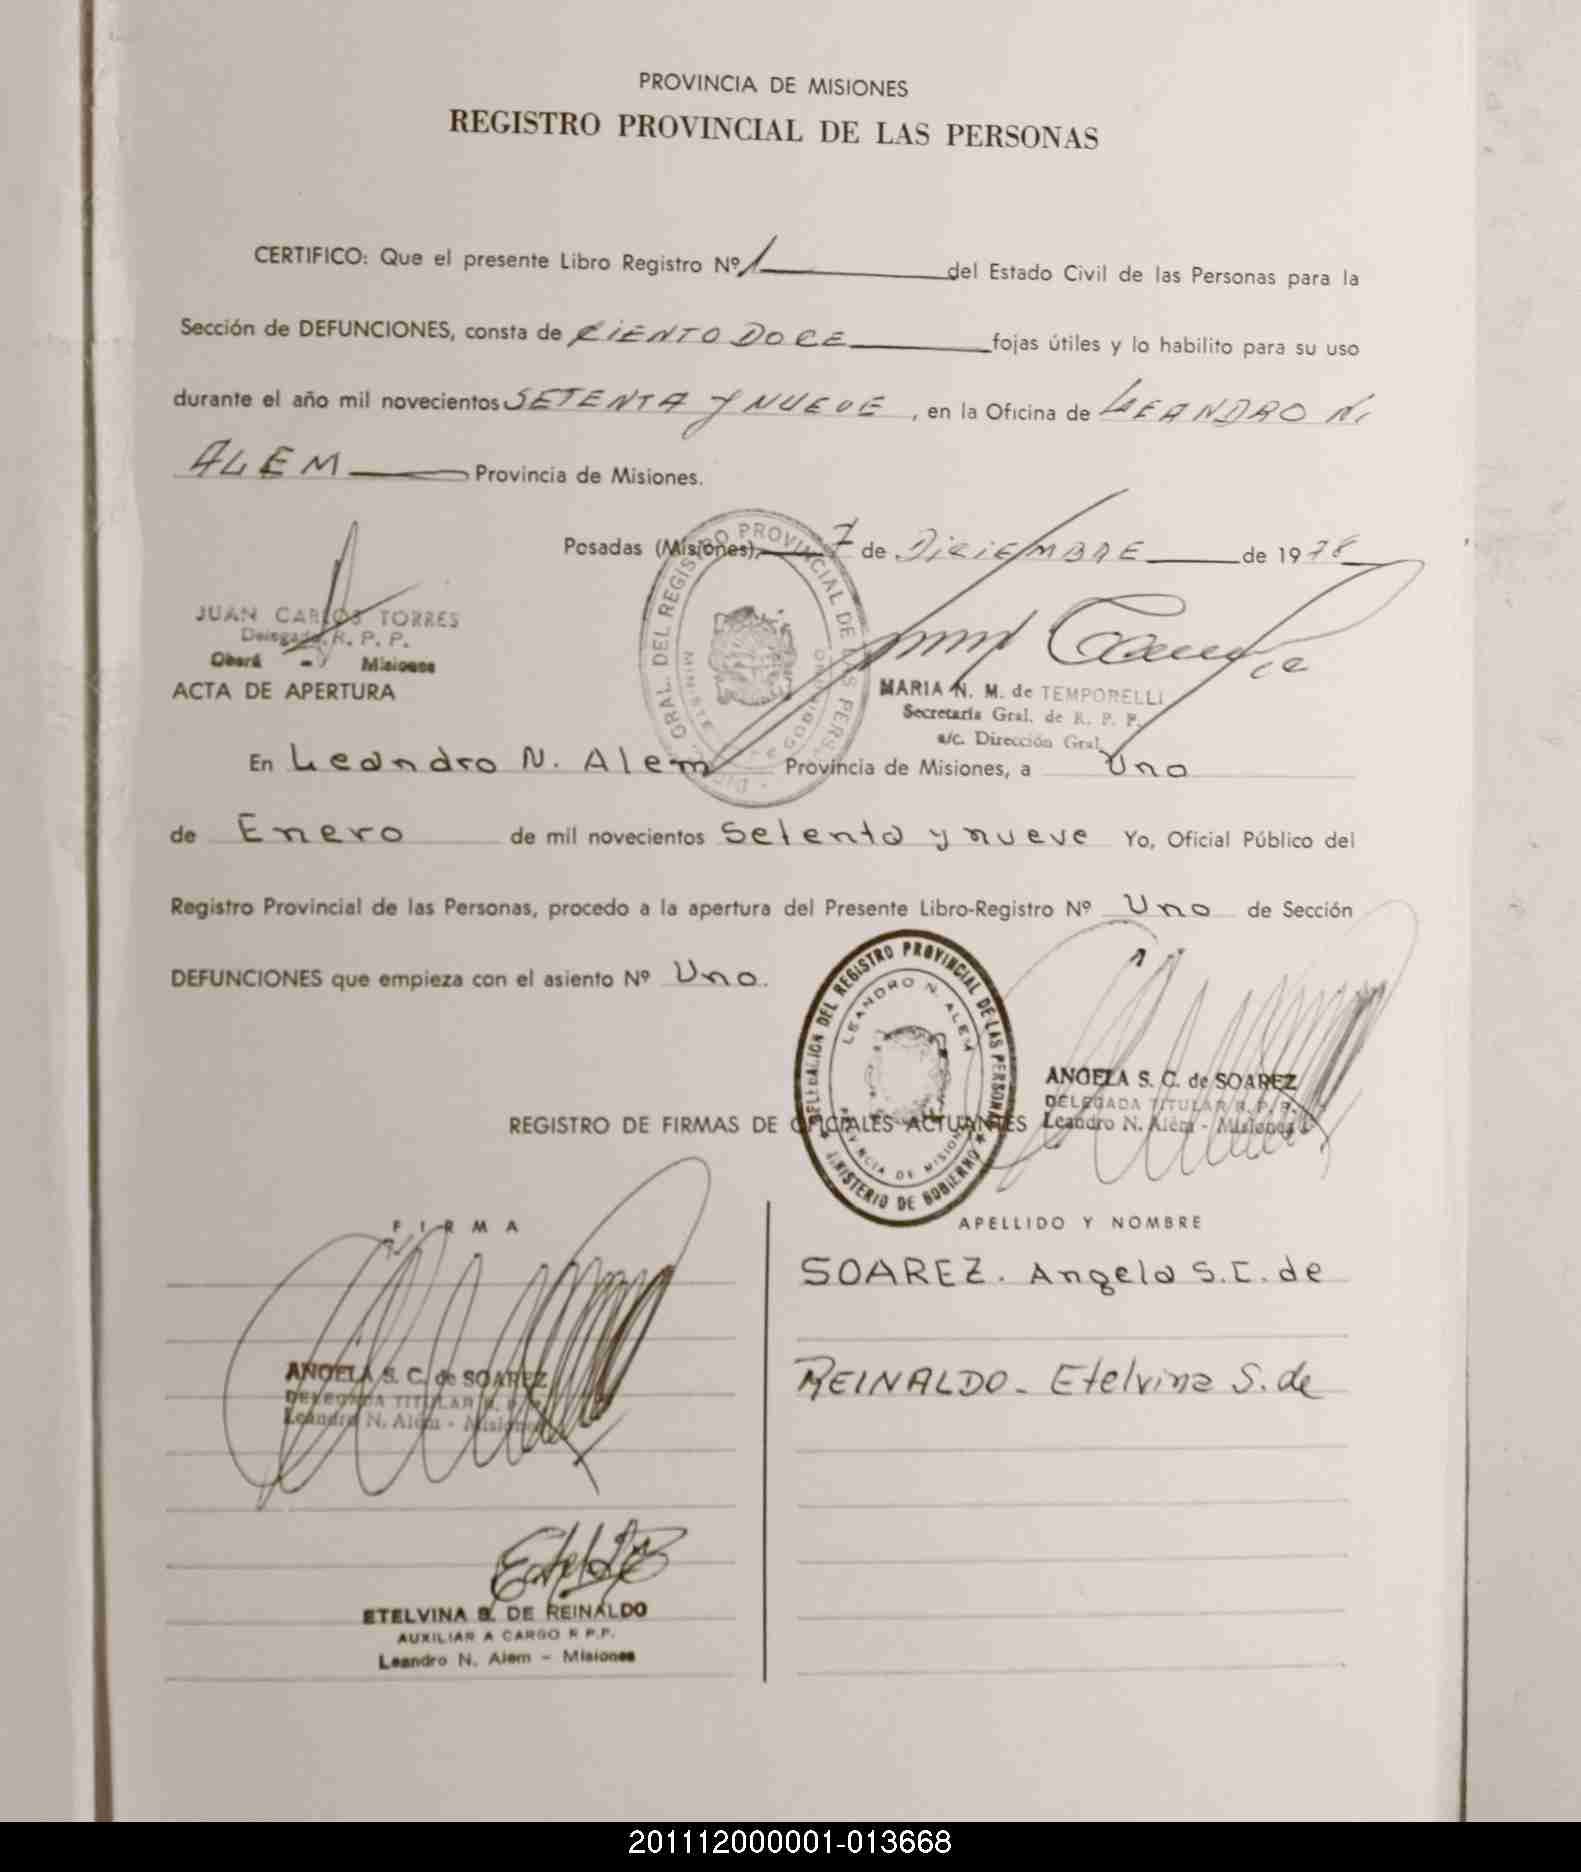 PROVINCIA DE MISIONES
REGISTRO PROVINCIAL DE LAS PERSONAS
CERTIFICO: Que el presente Libro Registro Nº 1 del Estado Civil de las Personas para la
Sección de DEFUNCIONES, consta de CIENTO DOCE fojas útiles y lo habilito para su uso
durante el año mil novecientos SETENTA Y NUEVE, en la Oficina de LEANDRO N.
ALEM Provincia de Misiones.
Posadas (Misiones), 7 de DICIEMBRE de 1978
DIR. GRAL. DEL REGISTRO PROVINCIAL DE LAS PERS
JUAN CARLOS TORRES
Delegado R. P. P.
Oberá - Misiones
MARIA N. M. de TEMPORELLI
Secretaría Gral. de R. P. P.
a/c. Dirección Gral.
ACTA DE APERTURA
En Leandro N. Alem Provincia de Misiones, a Uno
de Enero de mil novecientos Setenta y nueve Yo, Oficial Público del
Registro Provincial de las Personas, procedo a la apertura del Presente Libro-Registro Nº Uno de Sección
DEFUNCIONES que empieza con el asiento Nº Uno.
DELEGACION DEL REGISTRO PROVINCIAL DE LAS PERSONAS
LEANDRO N. ALEM
PROVINCIA DE MISIONES
MINISTERIO DE GOBIERNO
ANGELA S. C. de SOAREZ
DELEGADA TITULAR R. P. P.
Leandro N. Alem - Misiones
REGISTRO DE FIRMAS DE OFICIALES ACTUANTES
FIRMA
APELLIDO Y NOMBRE
SOAREZ. Angela S.C. de
REINALDO - Etelvina S. de
ANGELA S. C. de SOAREZ
DELEGADA TITULAR R. P. P.
Leandro N. Alem - Misiones
ETELVINA S. DE REINALDO
AUXILIAR A CARGO R P.P.
Leandro N. Alem - Misiones
201112000001-013668